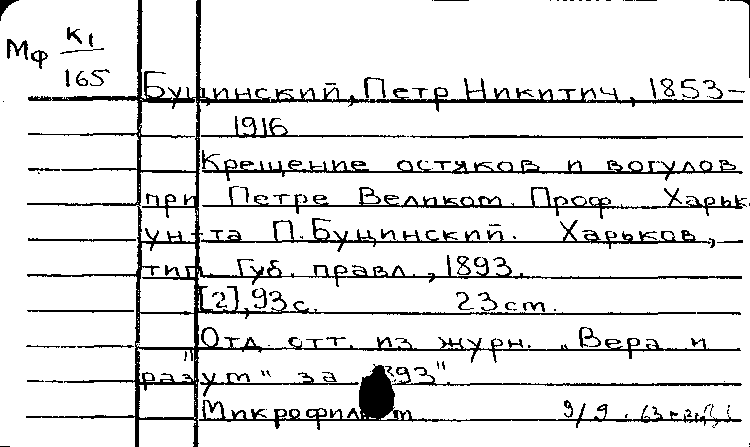 Мф К1/165
Буцинский, Петр Никитич, 1853-
1916
Крещение остяков и вогулов
при Петре Великом. Проф. Харьк.
ун-та П. Буцинский. Харьков,
тип. Губ. правл., 1893.
[2], 93 с. 23 cm.
Отд. отт. из журн. „Вера и
разум" за 1893".
Микрофильм 9/9